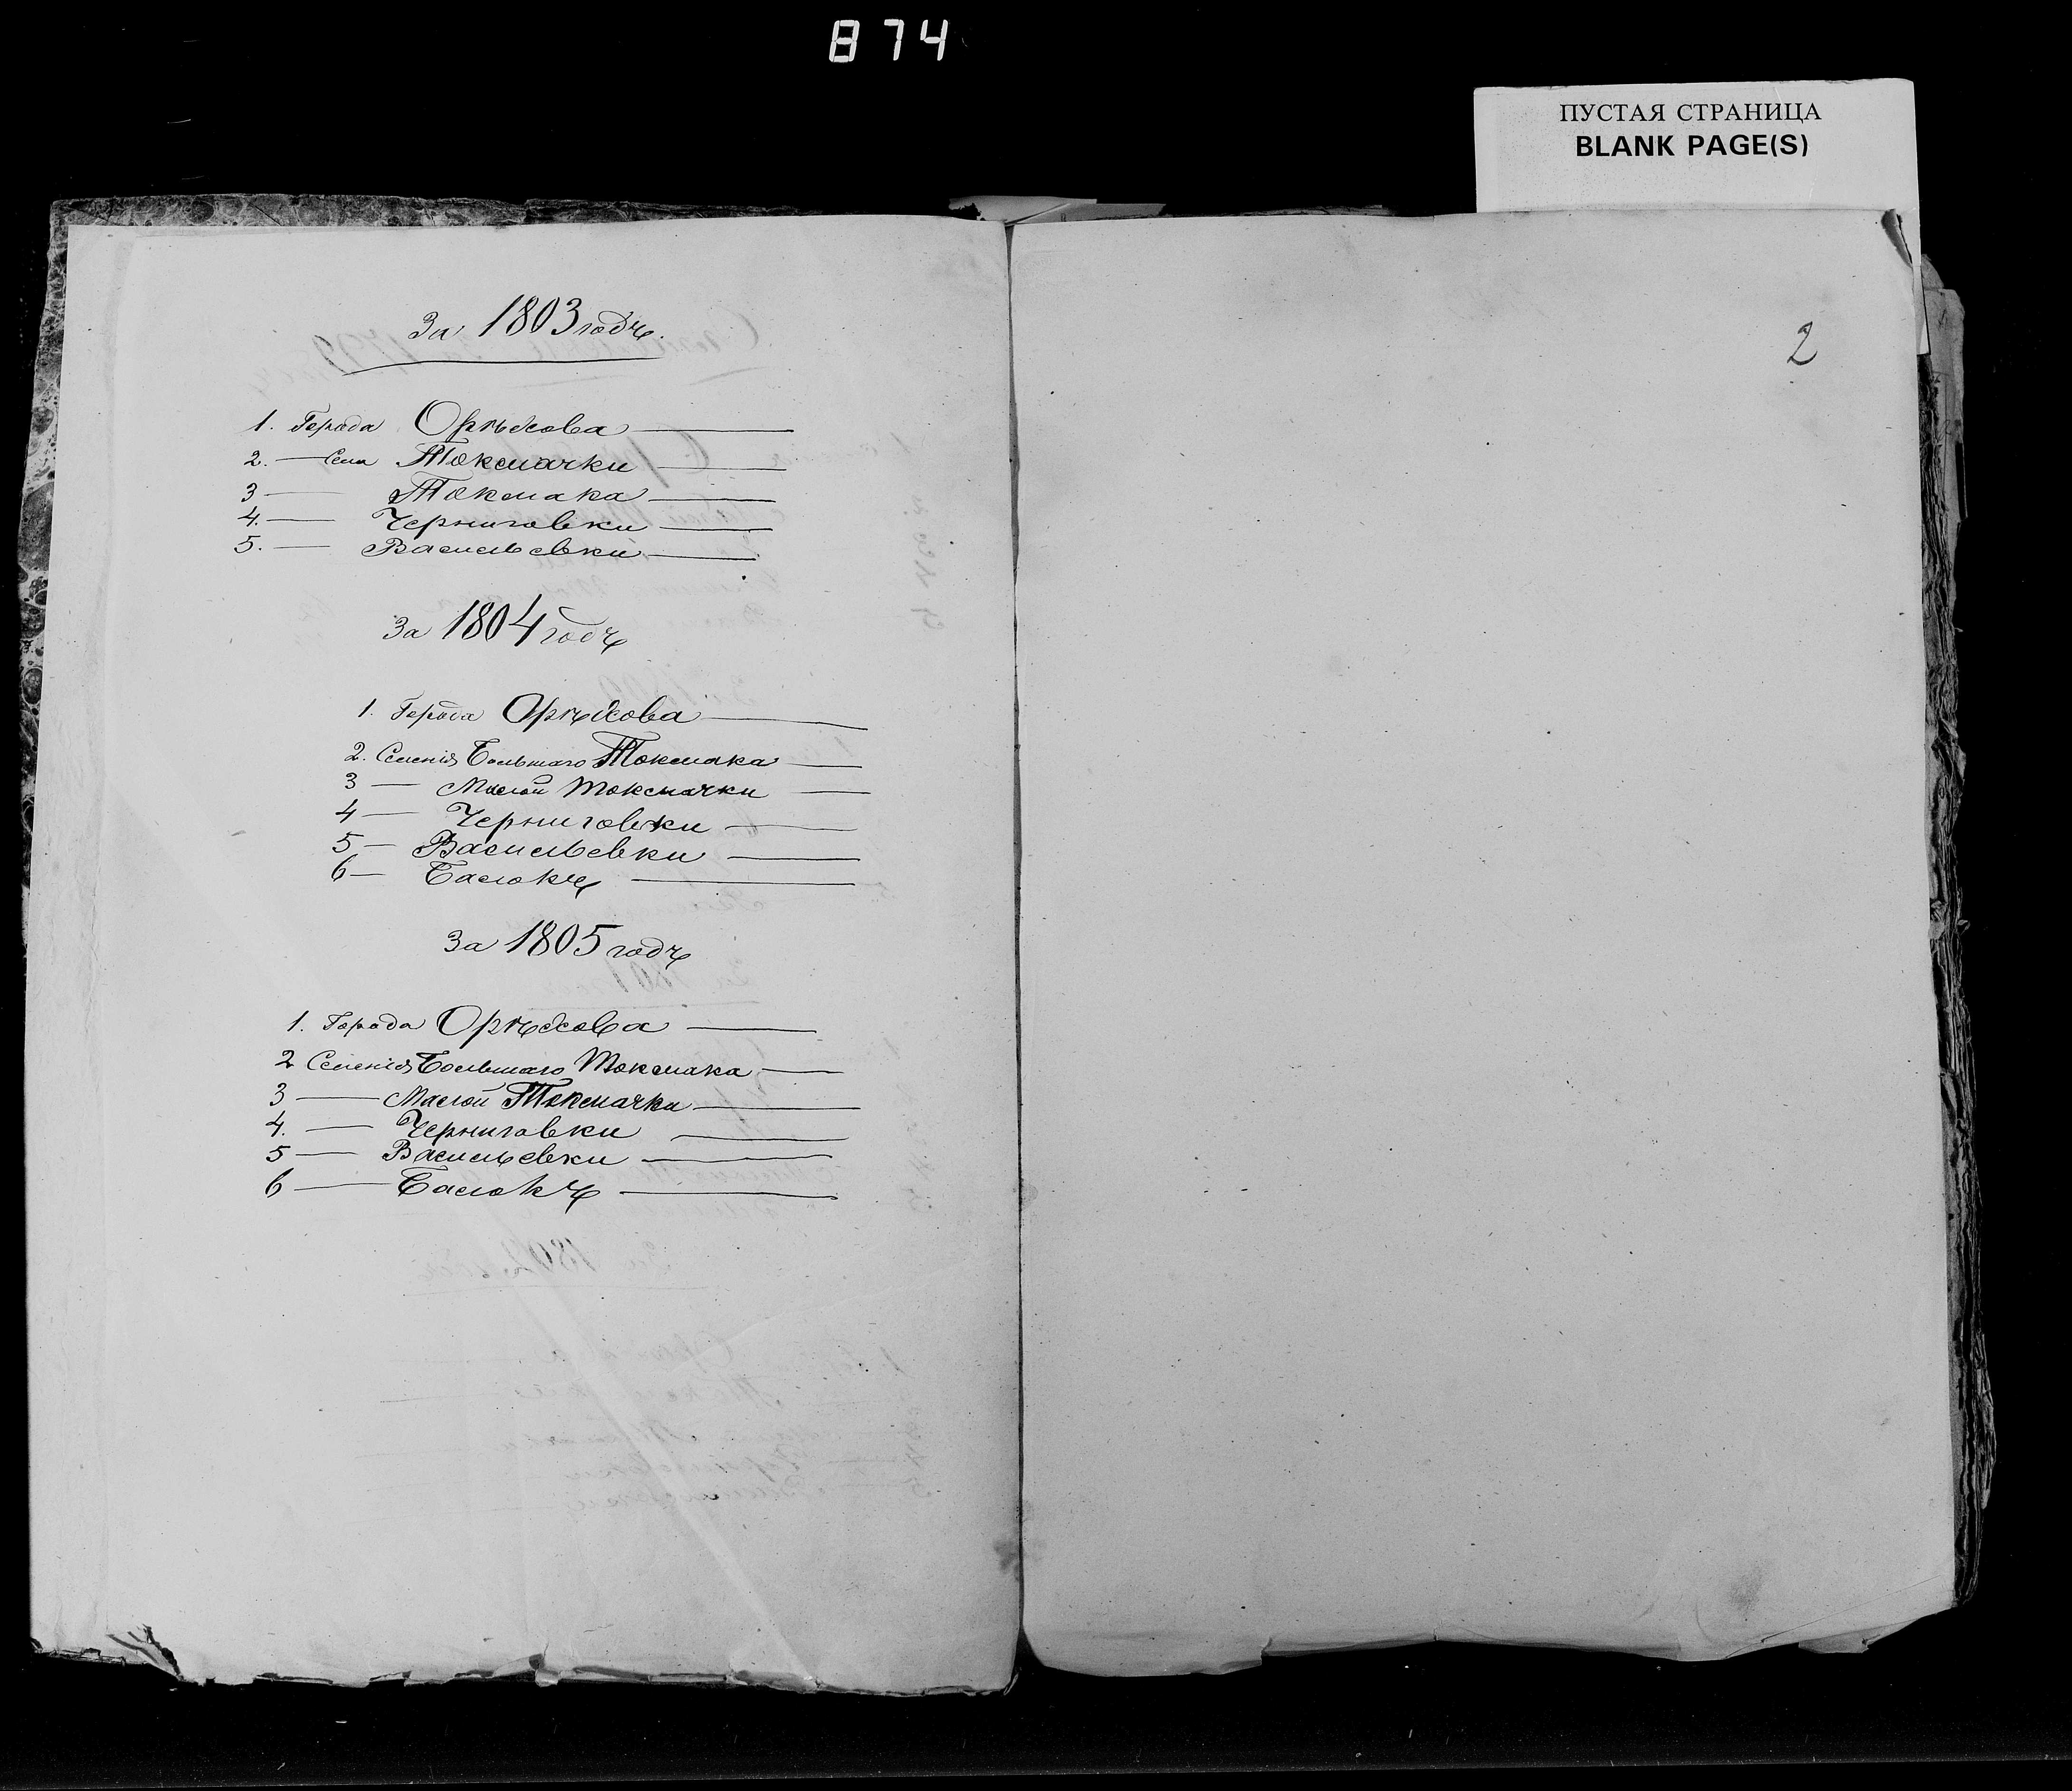 874
ПУСТАЯ СТРАНИЦА
BLANK PAGE(S)
За 1803 годъ.
1. Города Орѣхова
2. — Села Токмачки
3 — Токмака
4. — Черниговки
5. — Васильевки
За 1804 годъ
1. Города Орѣхова
2. Селенія Большаго Токмака
3 — Малой Токмачки
4 — Черниговки
5 — Васильевки
6 — Балокъ
За 1805 годъ
1. Города Орѣхова
2 Селенія Большаго Токмака
3 — Малой Токмачки
4. — Черниговки
5 — Васильевки
6 — Балокъ
2